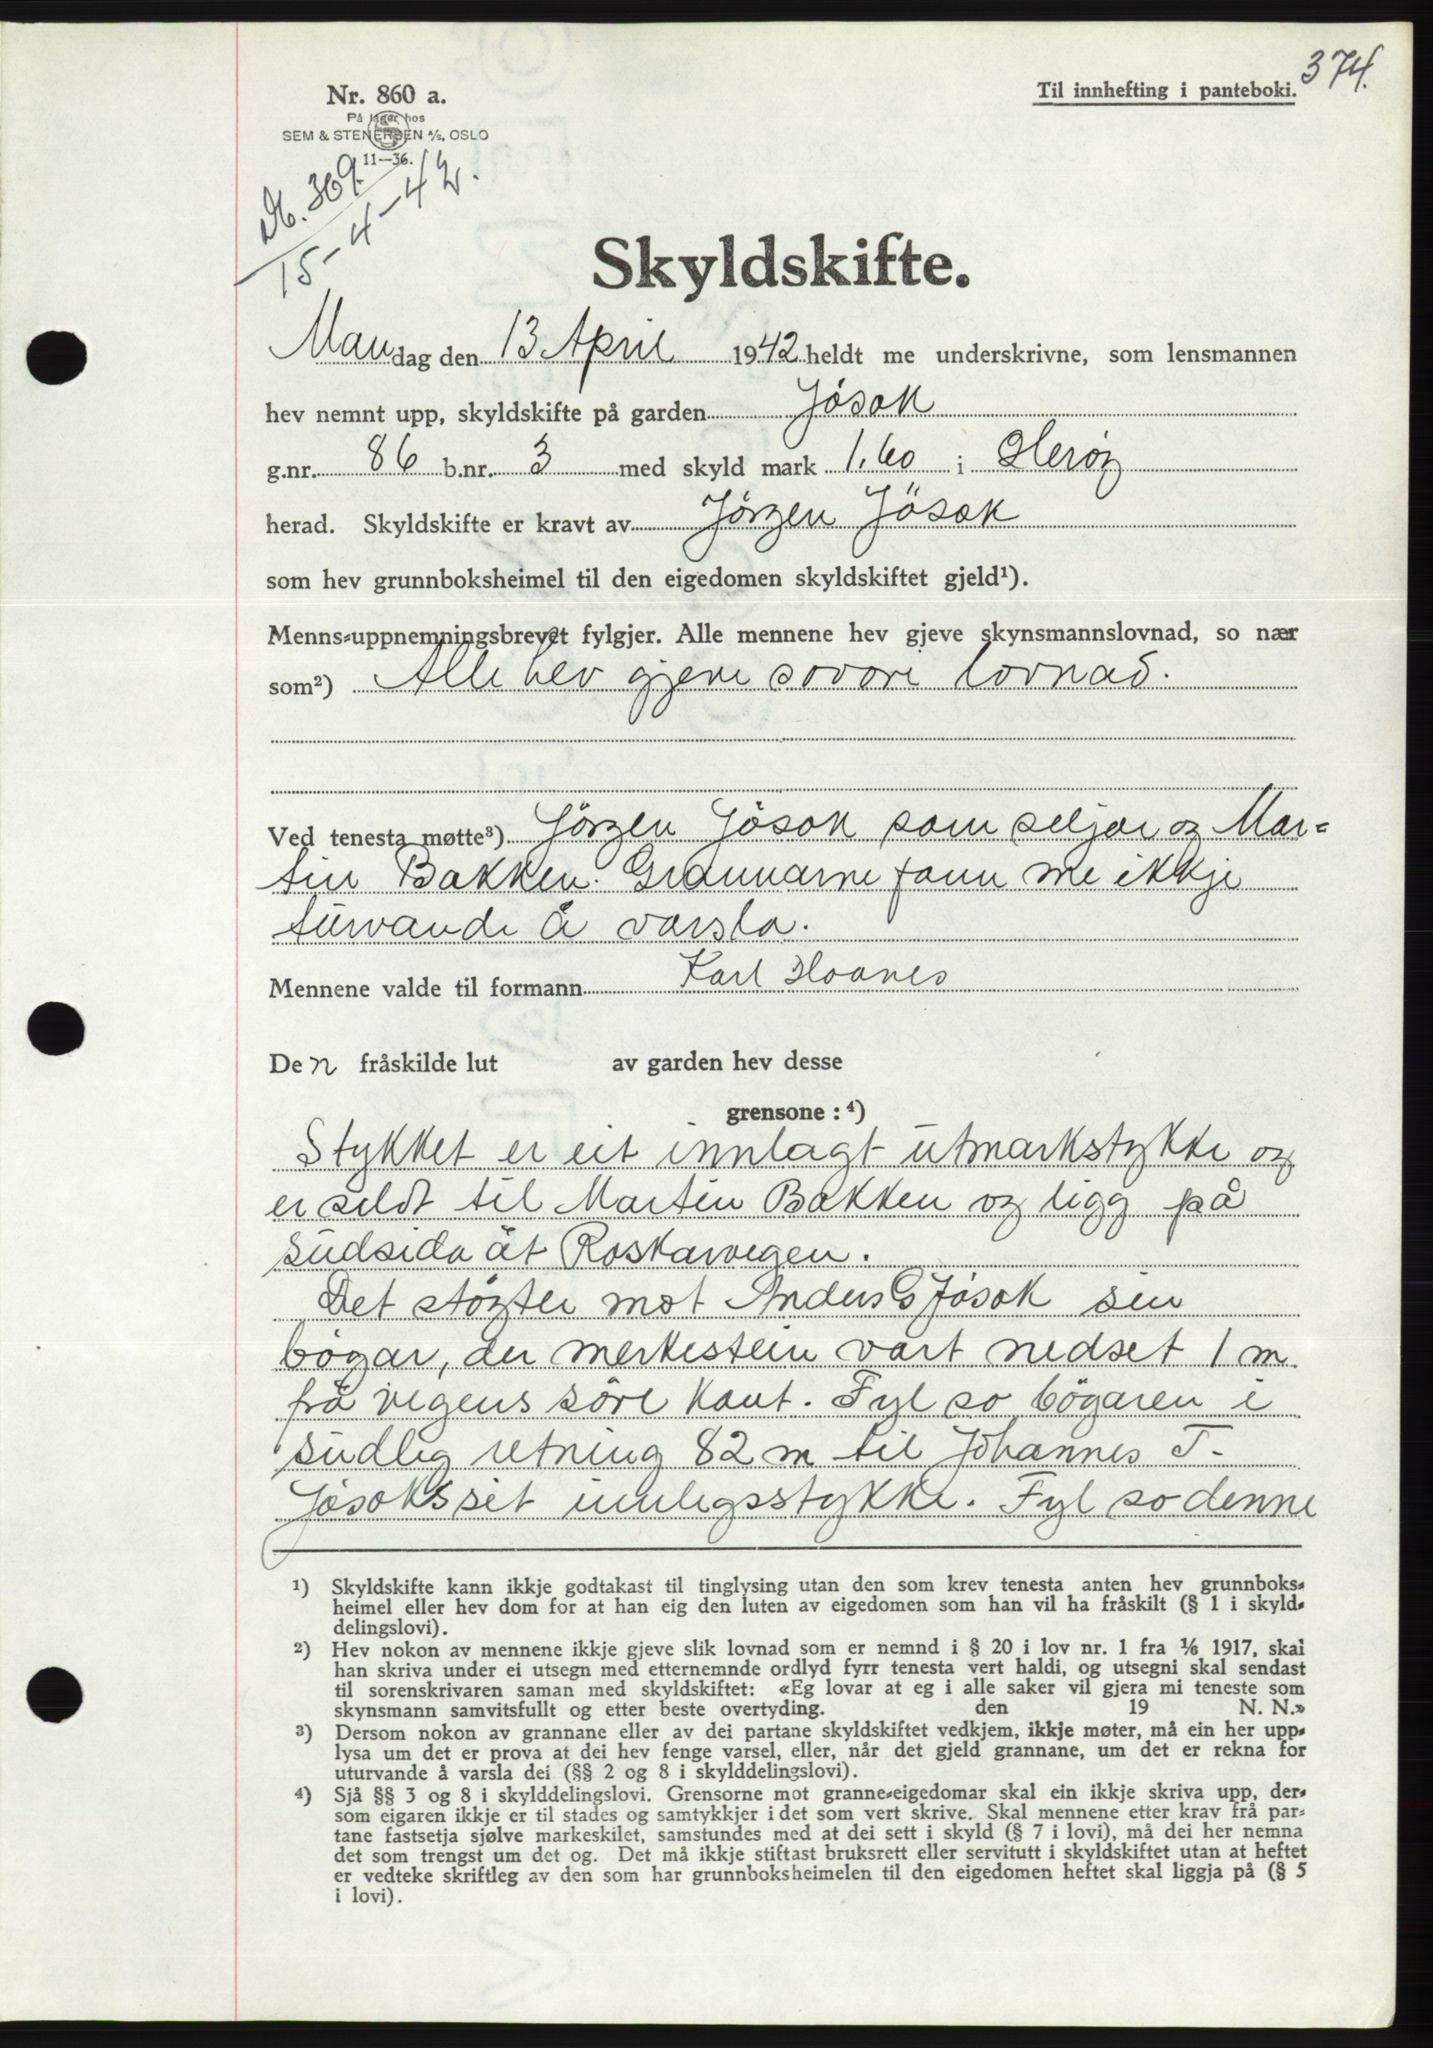 374.
Nr. 860 a.
Til innhefting i panteboki.
På lager hos
SEM & STENERSEN A/S, OSLO
11—36.
Db. 369.
15-4-42.
Skyldskifte.
Mandag den 13 April 1942 heldt me underskrivne, som lensmannen
hev nemnt upp, skyldskifte på garden Jøsok
g.nr. 86 b.nr. 3 med skyld mark 1.60 i Herøy
herad. Skyldskifte er kravt av Jørgen Jøsok
som hev grunnboksheimel til den eigedomen skyldskiftet gjeld¹).
Menns-uppnemningsbrevet fylgjer. Alle mennene hev gjeve skynsmannslovnad, so nær
som²) Alle hev gjeve sovore lovnad.
Ved tenesta møtte³) Jørgen Jøsok som seljar og Mar=
tin Bakken. Grannarne fann me ikkje
turvande å varsla.
Mennene valde til formann Karl
Den fråskilde lut av garden hev desse
grensone : ⁴)
Stykket er eit innlagt utmarkstykke og
er seldt til Martin Bakken og ligg på
sudsida åt Roskarvegen.
Det støyter mot Anders G Jøsok sin
bøgar, der merkestein vart nedset 1 m
frå vegens søre kant. Fyl so bøgaren i
sudlig retning 82 m til Johannes T.
Jøsoks sit innlegsstykke. Fyl so denne
¹) Skyldskifte kann ikkje godtakast til tinglysing utan den som krev tenesta anten hev grunnboks-
heimel eller hev dom for at han eig den luten av eigedomen som han vil ha fråskilt (§ 1 i skyld-
delingslovi).
²) Hev nokon av mennene ikkje gjeve slik lovnad som er nemnd i § 20 i lov nr. 1 fra ¹/₆ 1917, skal
han skriva under ei utsegn med etternemnde ordlyd fyrr tenesta vert haldi, og utsegni skal sendast
til sorenskrivaren saman med skyldskiftet: «Eg lovar at eg i alle saker vil gjera mi teneste som
skynsmann samvitsfullt og etter beste overtyding. den 19 N. N.»
³) Dersom nokon av grannane eller av dei partane skyldskiftet vedkjem, ikkje møter, må ein her upp-
lysa um det er prova at dei hev fenge varsel, eller, når det gjeld grannane, um det er rekna for
uturvande å varsla dei (§§ 2 og 8 i skylddelingslovi).
⁴) Sjå §§ 3 og 8 i skylddelingslovi. Grensorne mot granne-eigedomar skal ein ikkje skriva upp, der-
som eigaren ikkje er til stades og samtykkjer i det som vert skrive. Skal mennene etter krav frå par-
tane fastsetja sjølve markeskilet, samstundes med at dei sett i skyld (§ 7 i lovi), må dei her nemna
det som trengst um det og. Det må ikkje stiftast bruksrett eller servitutt i skyldskiftet utan at heftet
er vedteke skriftleg av den som har grunnboksheimelen til den eigedomen heftet skal liggja på (§ 5
i lovi).